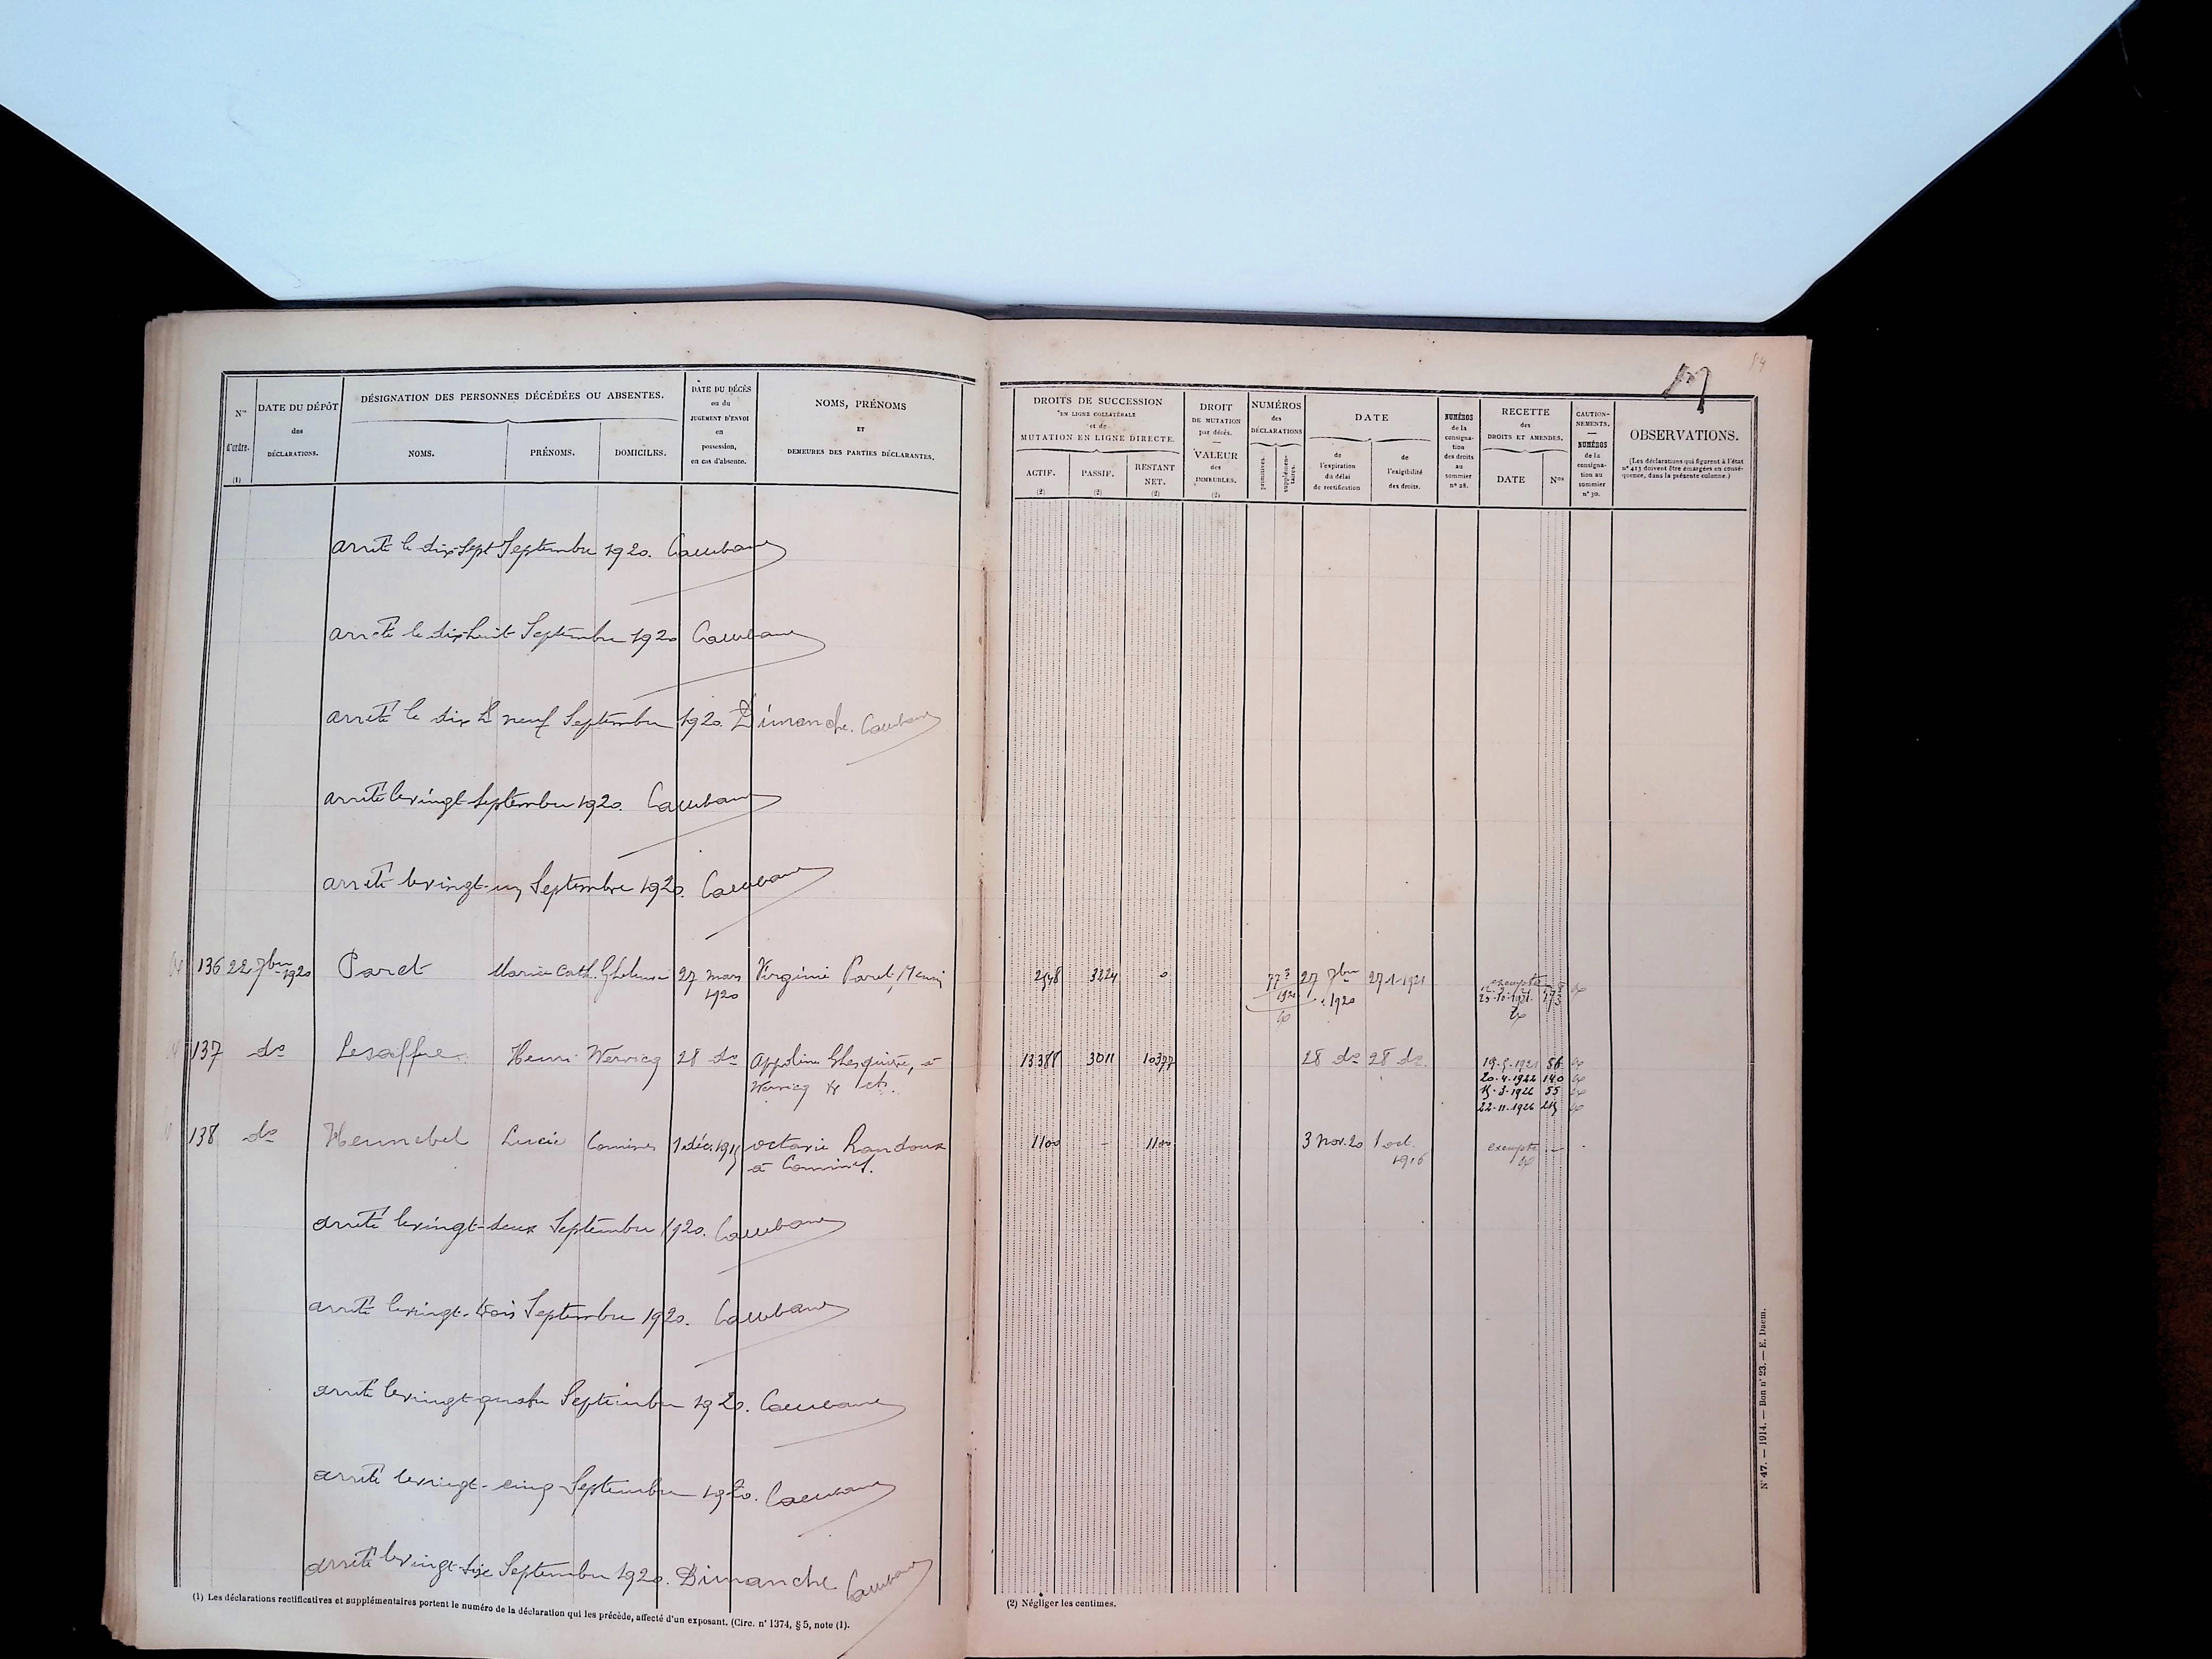 Nos d'ordre. (1)
DATE DU DÉPÔT des DÉCLARATIONS.
DÉSIGNATION DES PERSONNES DÉCÉDÉES OU ABSENTES.
NOMS. PRÉNOMS. DOMICILES.
DATE DU DÉCÈS ou du JUGEMENT D'ENVOI en possession, en cas d'absence.
NOMS, PRÉNOMS ET DEMEURES DES PARTIES DÉCLARANTES.
arrêté le dix-sept Septembre 1920.
arrêté le dix-huit Septembre 1920
arrêté le dix neuf Septembre 1920. Dimanche.
arrêté le vingt Septembre 1920.
arrêté le vingt-un Septembre 1920.
136 22 7bre 1920 Paret Marie Cath. 27 mars Virginie Paret,
1920
137 do Lesaffre Henri Wervicq 28 do Appoline Ghesquière, à
Wervicq
138 do Hennebel Lucie Comines 1 déc. 1915 Octavie Randoux
à Comines.
arrêté le vingt-deux Septembre 1920.
arrêté le vingt-trois Septembre 1920.
arrêté le vingt-quatre Septembre 1920.
arrêté le vingt-cinq Septembre 1920.
arrêté le vingt-six Septembre 1920. Dimanche
(1) Les déclarations rectificatives et supplémentaires portent le numéro de la déclaration qui les précède, affecté d'un exposant. (Circ. n° 1374, § 5, note (1).
DROITS DE SUCCESSION EN LIGNE COLLATÉRALE et de MUTATION EN LIGNE DIRECTE.
ACTIF. (2) PASSIF. (2) RESTANT NET. (2)
DROIT DE MUTATION par décès. — VALEUR des IMMEUBLES. (2)
NUMÉROS des DÉCLARATIONS
primitives. supplémentaires.
DATE
de l'expiration du délai de rectification
de l'exigibilité des droits.
NUMÉROS de la consignation des droits au sommier n° 28.
RECETTE des DROITS ET AMENDES.
DATE Nos
CAUTIONNEMENTS. — NUMÉROS de la consignation au sommier n° 30.
OBSERVATIONS.
(Les déclarations qui figurent à l'état n° 413 doivent être émargées en conséquence, dans la présente colonne.)
3224 0 27 7bre 1920 27-1-1921 exempte
13388 3011 10377 28 do 28 do 19-5-1921 56
20-4-1922 140
15-3-1926 55
22-11-1926
1100 - 1100 3 Nov. 20 1 oct. 1916 exempte
(2) Négliger les centimes.
N° 47. — 1914. — Bon n° 23. — E. Daem.